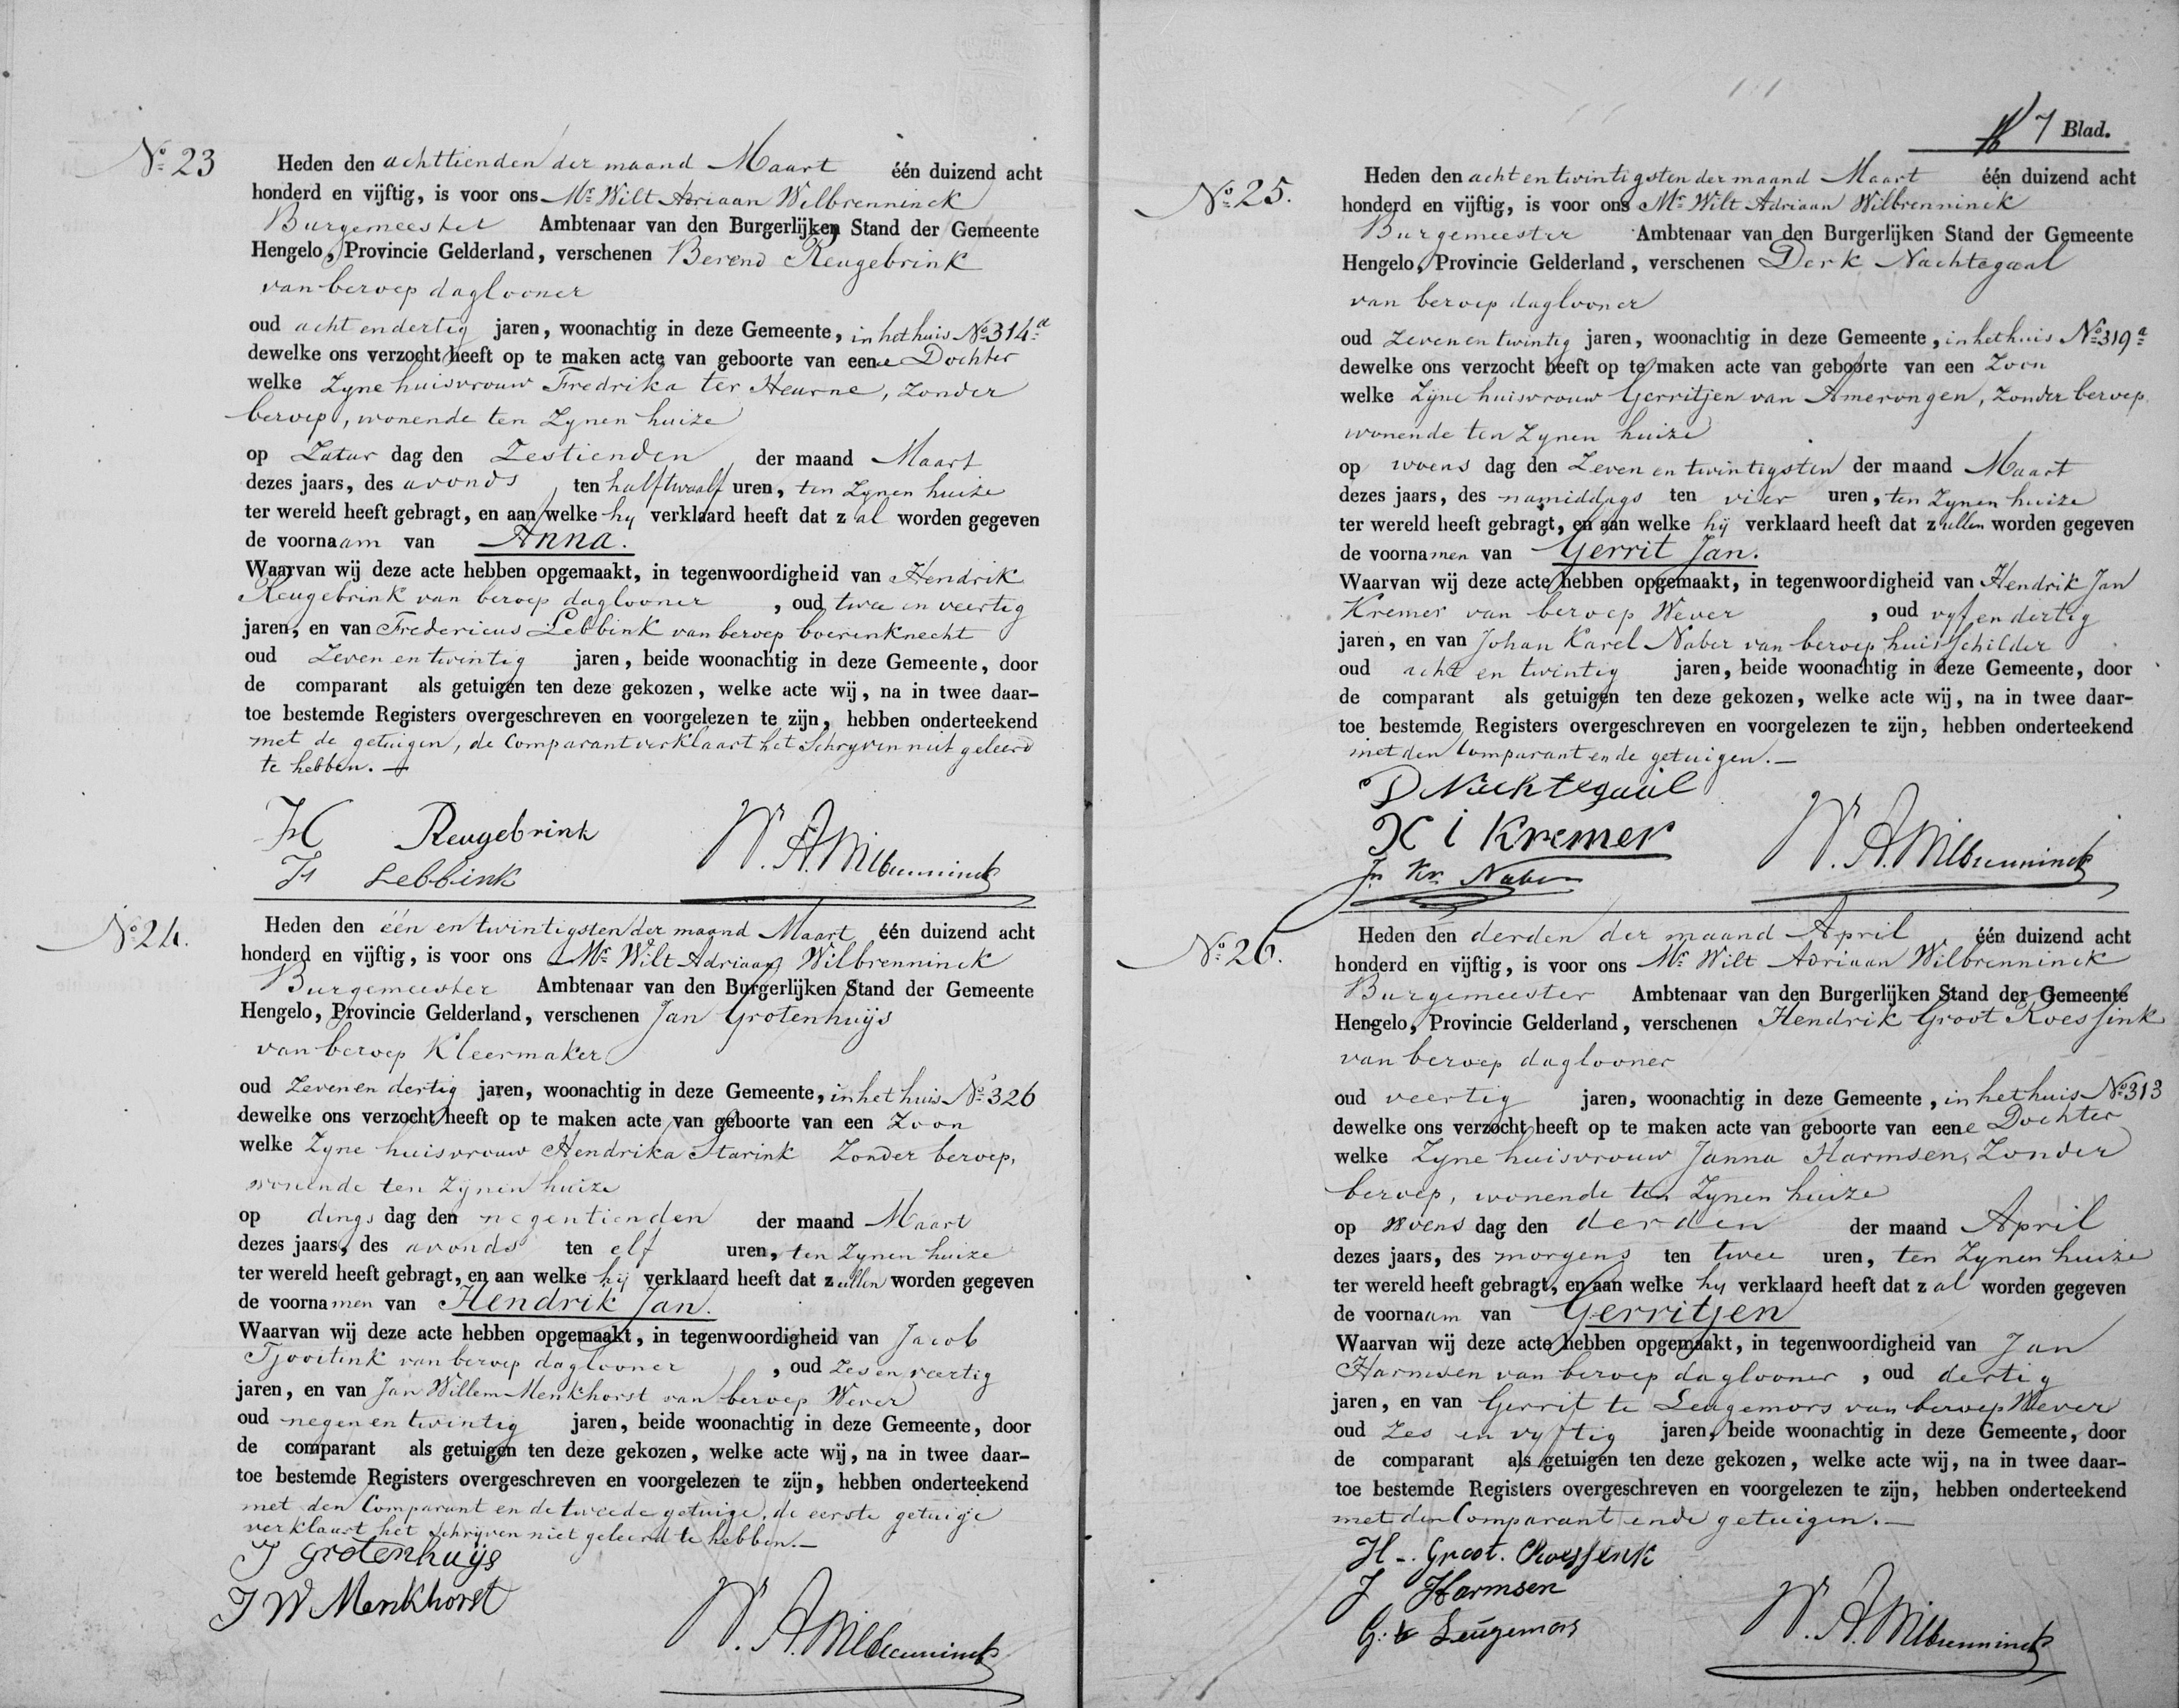 № 23
Heden den achttienden der maand Maart één duizend acht
honderd en vijftig, is voor ons Mr Wilt Adriaan Wilbrenninck
Burgemeester Ambtenaar van den Burgerlijken Stand der Gemeente
Hengelo, Provincie Gelderland, verschenen Berend Reugebrink
van beroep daglooner
oud acht en dertig jaren, woonachtig in deze Gemeente, in het huis No 314a
dewelke ons verzocht heeft op te maken acte van geboorte van eene Dochter
welke Zyne huisvrouw Fredrika ter Heurne, Zonder
beroep, wonende ten Zynen huize
op Zatur dag den Zestienden der maand Maart
dezes jaars, des avonds ten half twaalf uren, ten Zynen huize
ter wereld heeft gebragt, en aan welke hy verklaard heeft dat zal worden gegeven
de voornaam van Anna.
Waarvan wij deze acte hebben opgemaakt, in tegenwoordigheid van Hendrik
Reugebrink van beroep daglooner, oud twee en veertig
jaren, en van Fredericus Lebbink van beroep boerenknecht
oud Zeven en twintig jaren, beide woonachtig in deze Gemeente, door
de comparant als getuigen ten deze gekozen, welke acte wij, na in twee daar-
toe bestemde Registers overgeschreven en voorgelezen te zijn, hebben onderteekend
met de getuigen, de Comparant verklaart het Schryven niet geleerd
te hebben. —
H Reugebrink
Fr Lebbink
W. A. Wilbrenninck
№ 24.
Heden den één en twintigsten der maand Maart één duizend acht
honderd en vijftig, is voor ons Mr Wilt Adriaan Wilbrenninck
Burgemeester Ambtenaar van den Burgerlijken Stand der Gemeente
Hengelo, Provincie Gelderland, verschenen Jan Grotenhuijs
van beroep Kleermaker
oud Zeven en dertig jaren, woonachtig in deze Gemeente, in het huis No 326
dewelke ons verzocht heeft op te maken acte van geboorte van een Zoon
welke Zyne huisvrouw Hendrika Starink Zonder beroep,
wonende ten Zijnen huize
op dings dag den negentienden der maand Maart
dezes jaars, des avonds ten elf uren, ten Zynen huize
ter wereld heeft gebragt, en aan welke hij verklaard heeft dat zullen worden gegeven
de voornamen van Hendrik Jan.
Waarvan wij deze acte hebben opgemaakt, in tegenwoordigheid van Jacob
van beroep daglooner, oud Zes en veertig
jaren, en van Jan Willem Menkhorst van beroep Wever
oud negen en twintig jaren, beide woonachtig in deze Gemeente, door
de comparant als getuigen ten deze gekozen, welke acte wij, na in twee daar-
toe bestemde Registers overgeschreven en voorgelezen te zijn, hebben onderteekend
met den Comparant en de tweede getuige, de eerste getuige
verklaart het Schrijven niet geleerd te hebben. —
J Grotenhuijs
J W Menkhorst
W. A. Wilbrenninck
7 Blad.
№ 25.
Heden den acht en twintigsten der maand Maart één duizend acht
honderd en vijftig, is voor ons Mr Wilt Adriaan Wilbrenninck
Burgemeester Ambtenaar van den Burgerlijken Stand der Gemeente
Hengelo, Provincie Gelderland, verschenen Derk Nachtegaal
van beroep daglooner
oud Zeven en twintig jaren, woonachtig in deze Gemeente, in het huis No 319a
dewelke ons verzocht heeft op te maken acte van geboorte van een Zoon
welke Zijne huisvrouw Gerritjen van Amerongen, Zonder beroep,
wonende ten Zynen huize
op woens dag den Zeven en twintigsten der maand Maart
dezes jaars, des namiddags ten vier uren, ten Zynen huize
ter wereld heeft gebragt, en aan welke hij verklaard heeft dat zullen worden gegeven
de voornamen van Gerrit Jan.
Waarvan wij deze acte hebben opgemaakt, in tegenwoordigheid van Hendrik Jan
Kremer van beroep Wever, oud vyf en dertig
jaren, en van Johan Karel Naber van beroep huisschilder
oud acht en twintig jaren, beide woonachtig in deze Gemeente, door
de comparant als getuigen ten deze gekozen, welke acte wij, na in twee daar-
toe bestemde Registers overgeschreven en voorgelezen te zijn, hebben onderteekend
met den Comparant en de getuigen. —
D Nachtegaal
H i Kremer
Jn Kr Naber
W. A. Wilbrenninck
№ 26.
Heden den derden der maand April één duizend acht
honderd en vijftig, is voor ons Mr Wilt Adriaan Wilbrenninck
Burgemeester Ambtenaar van den Burgerlijken Stand der Gemeente
Hengelo, Provincie Gelderland, verschenen Hendrik Groot Roessink
van beroep daglooner
oud veertig jaren, woonachtig in deze Gemeente, in het huis No 313
dewelke ons verzocht heeft op te maken acte van geboorte van eene Dochter
welke Zyne huisvrouw Janna Harmsen, Zonder
beroep, wonende ten Zynen huize
op woens dag den derden der maand April
dezes jaars, des morgens ten twee uren, ten Zynen huize
ter wereld heeft gebragt, en aan welke hy verklaard heeft dat zal worden gegeven
de voornaam van Gerritjen
Waarvan wij deze acte hebben opgemaakt, in tegenwoordigheid van Jan
Harmsen van beroep daglooner, oud dertig
jaren, en van Gerrit te Leugemors van beroep Wever
oud Zes en vyftig jaren, beide woonachtig in deze Gemeente, door
de comparant als getuigen ten deze gekozen, welke acte wij, na in twee daar-
toe bestemde Registers overgeschreven en voorgelezen te zijn, hebben onderteekend
met den Comparant en de getuigen. —
H. Groot. Roessink
J Harmsen
G. te Leugemors
W. A. Wilbrenninck